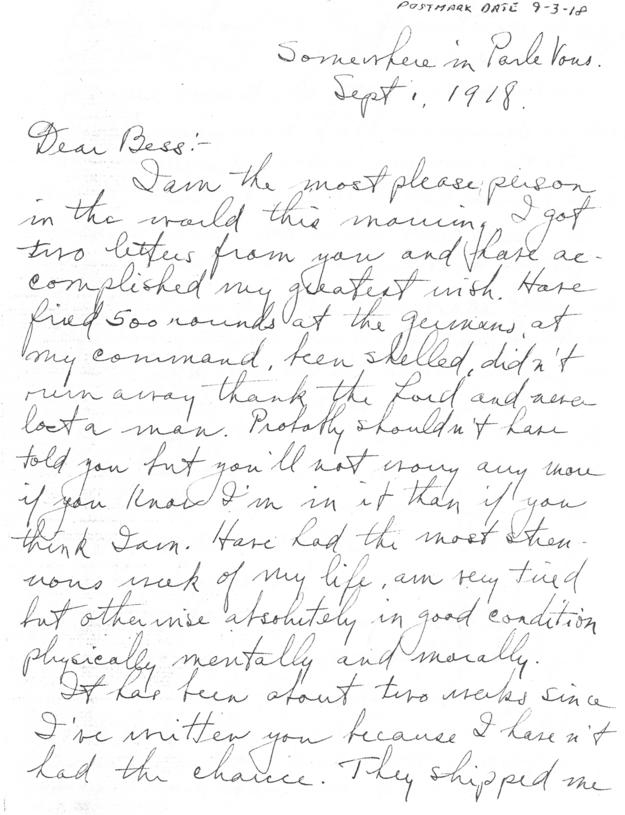 POSTMARK DATE 9-3-18
Somewhere in Parle Vous.
Sept 1, 1918.
Dear Bess:-
I am the most please person
in the world this morning. I got
two letters from you and have ac-
complished my greatest wish. Have
fired 500 rounds at the Germans, at
my command, been shelled, didn't
run away thank the Lord and never
lost a man. Probably shouldn't have
told you but you'll not worry any more
if you know I'm in it than if you
think I am. Have had the most stren-
uous week of my life, am very tired
but otherwise absolutely in good condition
physically mentally and morally.
It has been about two weeks since
I've written you because I haven't
had the chance. They shipped me